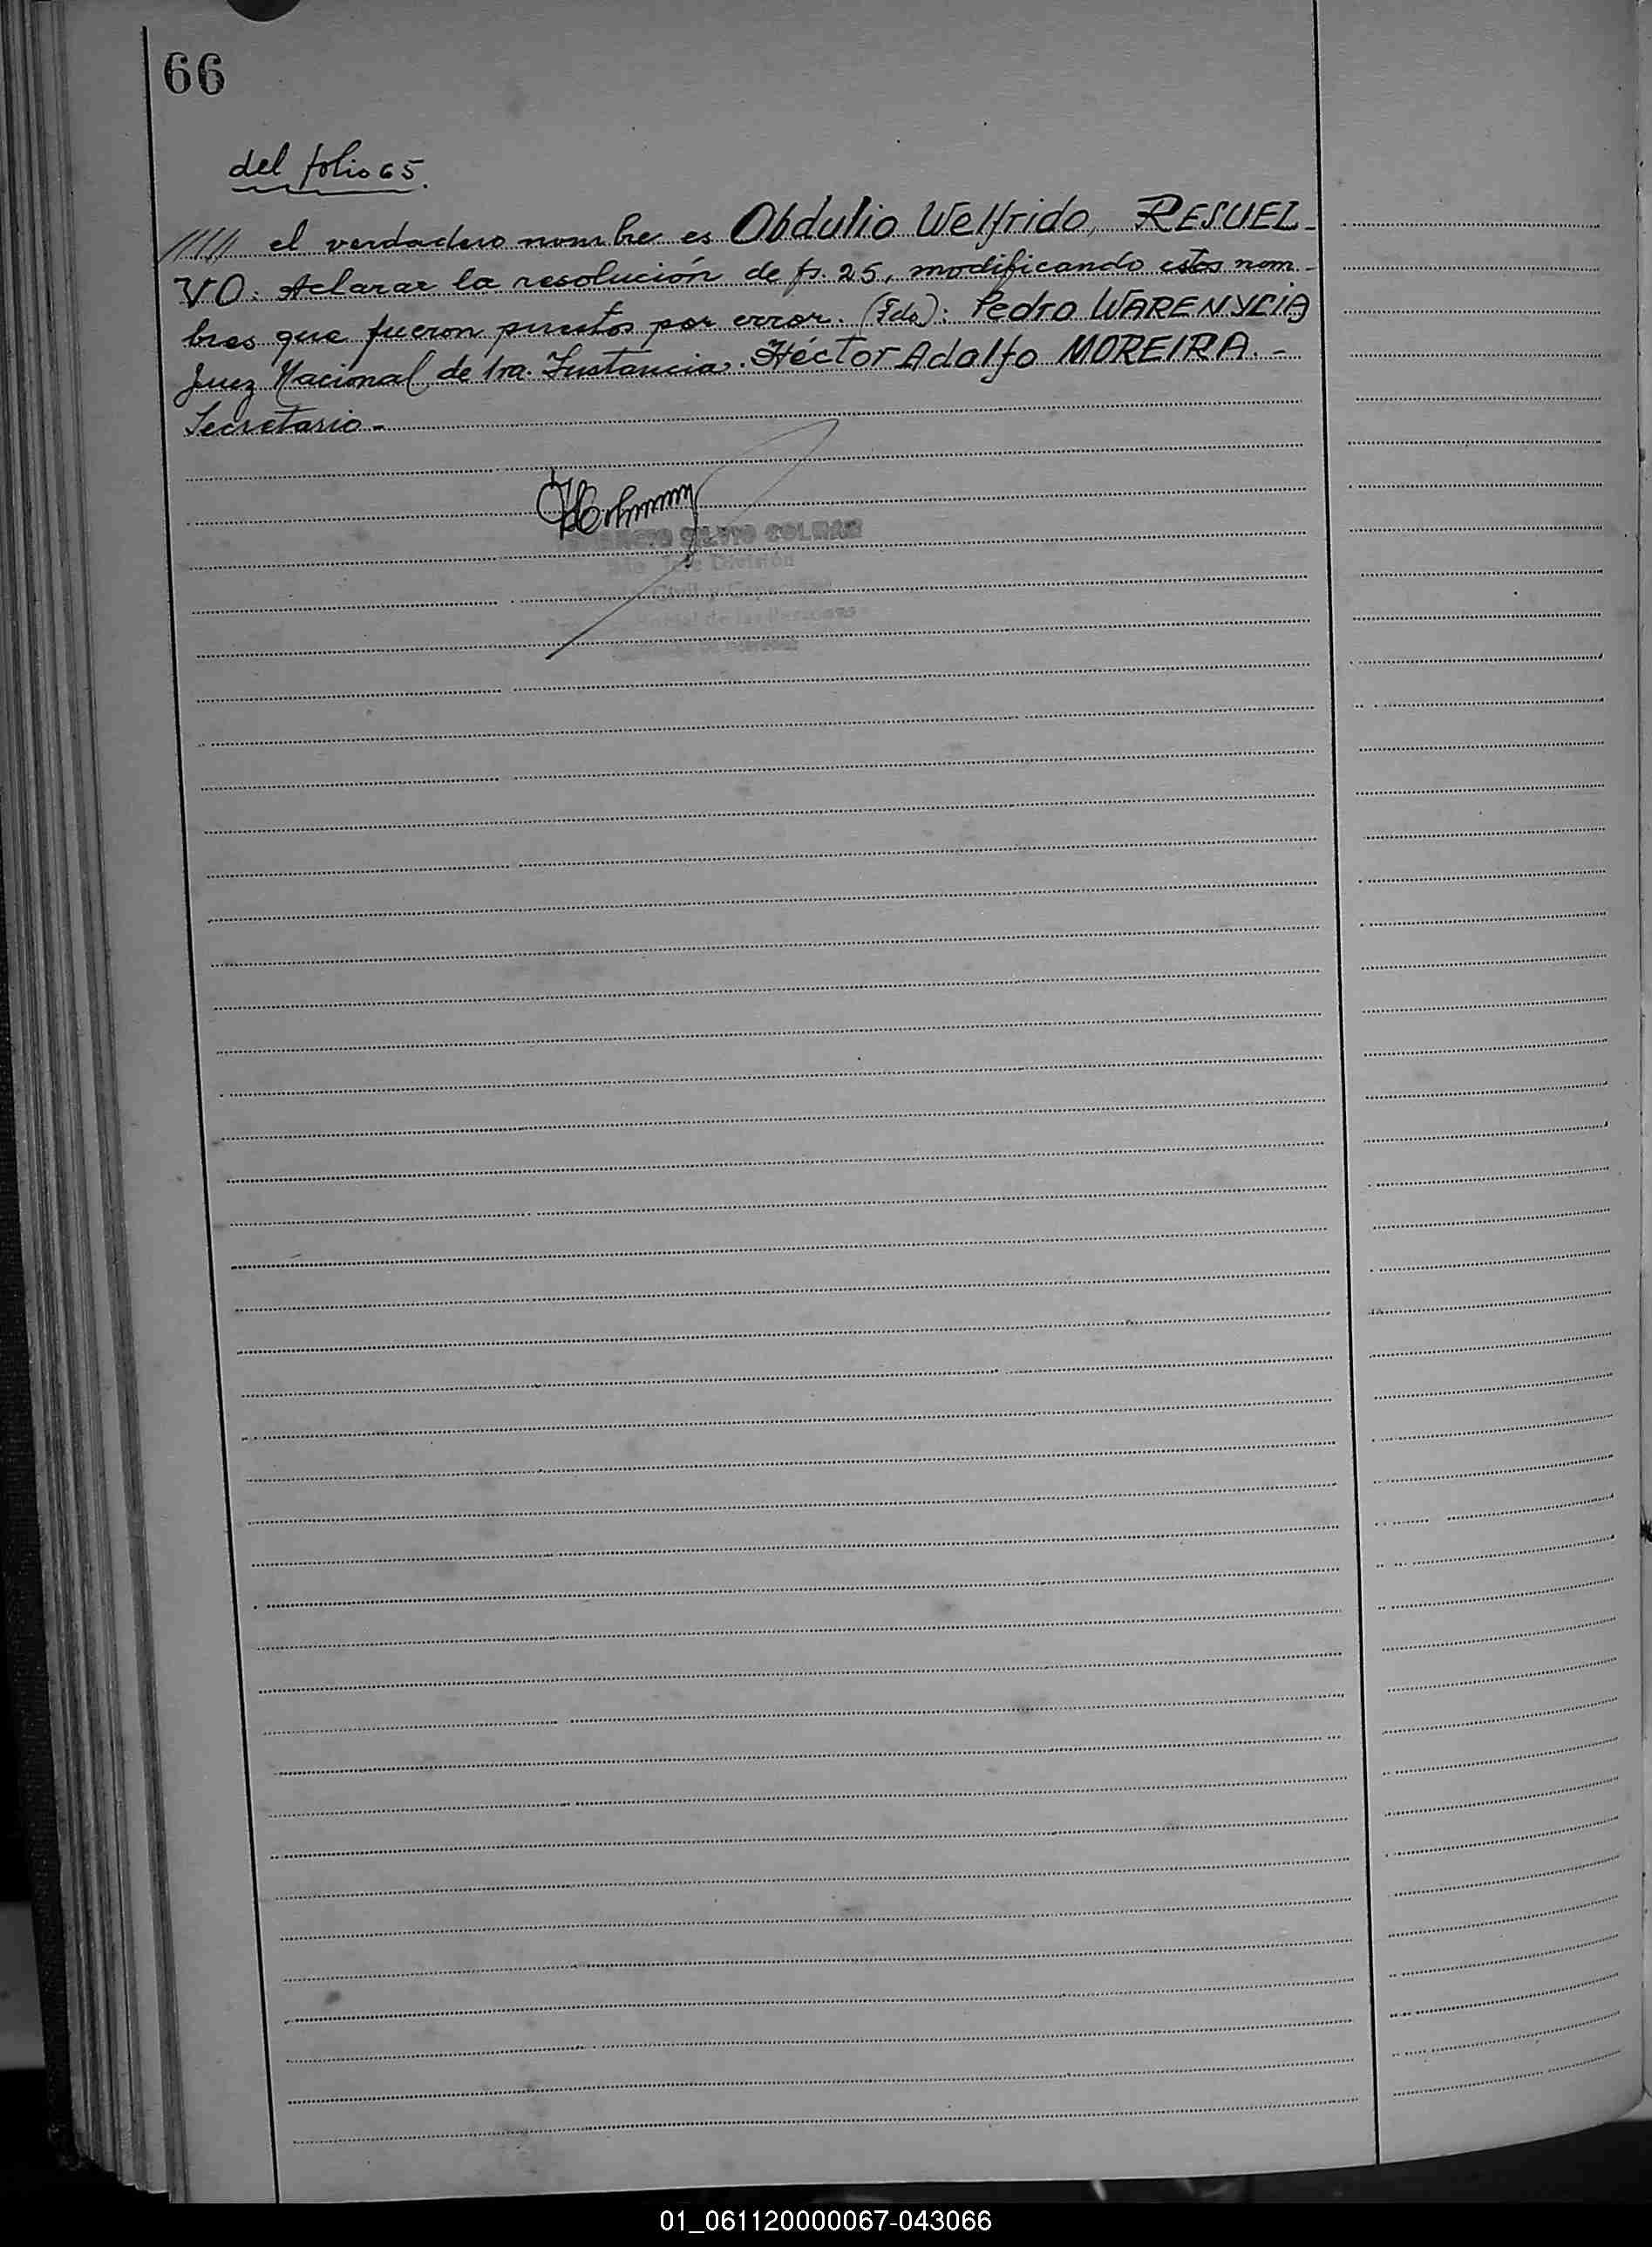 66
del folio 65.
///// el verdadero nombre es Obdulio Welfrido, RESUEL-
VO: Aclarar la resolución de fs. 25, modificando estos nom-
bres que fueron puestos por error. (Fdo): Pedro WARENYCIA
Juez Nacional de 1ra. Instancia. Héctor Adolfo MOREIRA.-
Secretario-
SILVIO COLMAN
Jefe División
de las Personas
01_061120000067-043066